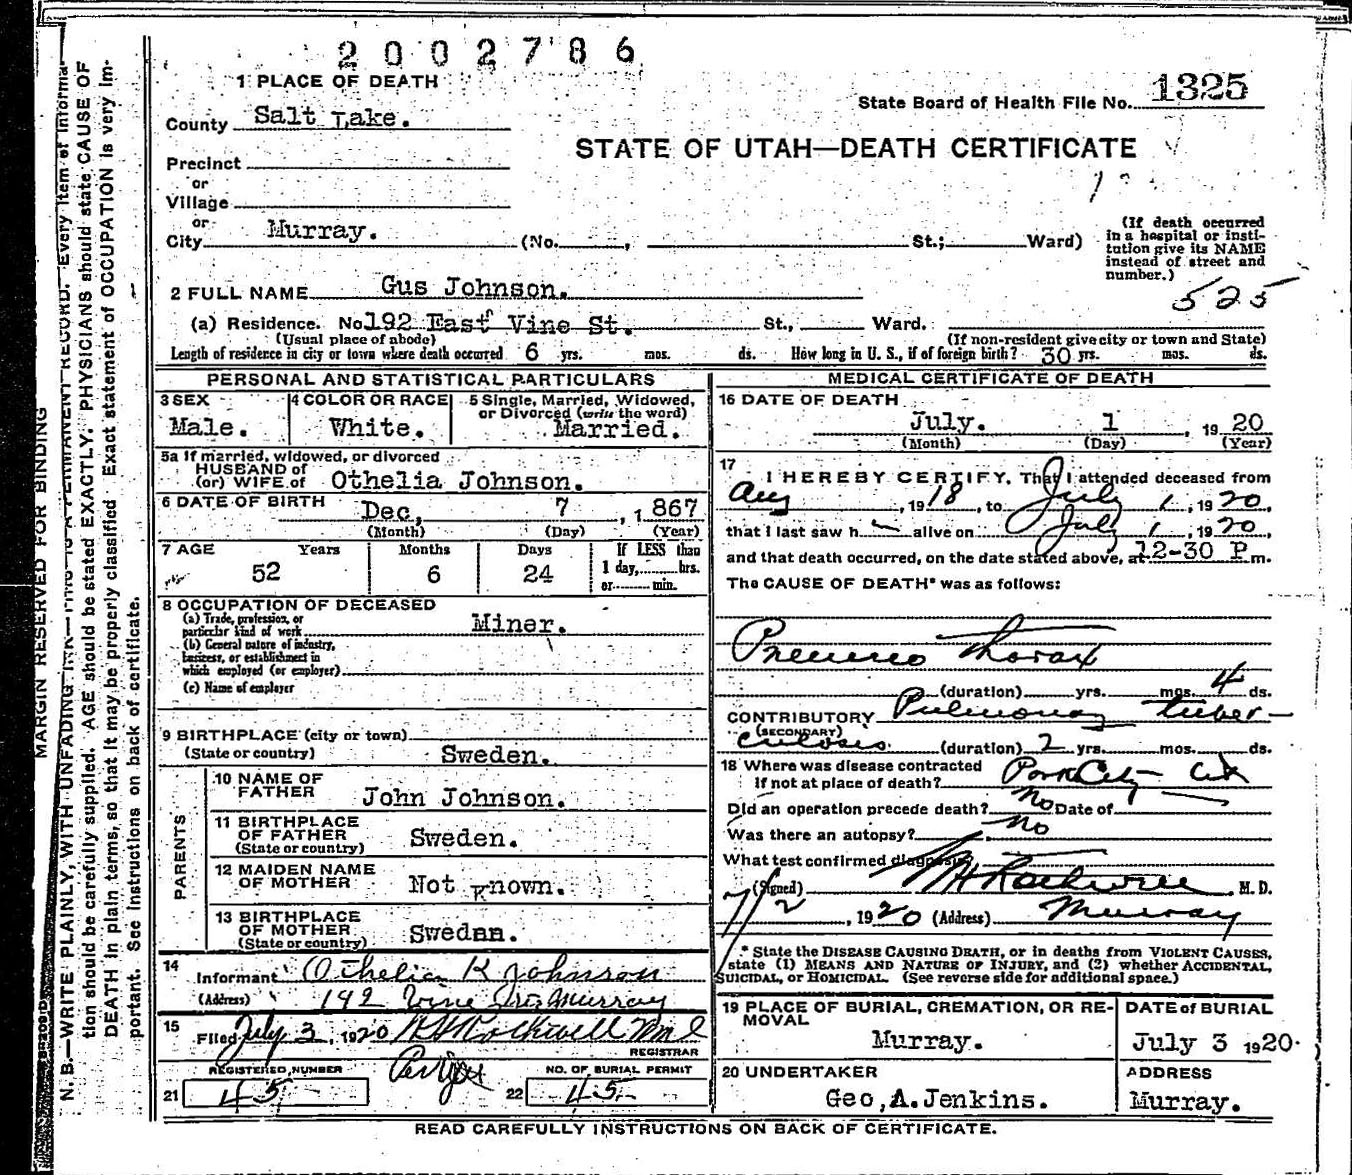 2002786
1 PLACE OF DEATH
State Board of Health File No. 1325
County Salt Lake.
STATE OF UTAH—DEATH CERTIFICATE
Precinct
or
Village
or
City Murray. (No. , St.; Ward)
(If death occurred in a hospital or institution give its NAME instead of street and number.)
525
2 FULL NAME Gus Johnson.
(a) Residence. No 192 East Vine St. St., Ward.
(Usual place of abode) (If non-resident give city or town and State)
Length of residence in city or town where death occurred 6 yrs. mos. ds. How long in U. S., if of foreign birth? 30 yrs. mos. ds.
PERSONAL AND STATISTICAL PARTICULARS
3 SEX
Male.
4 COLOR OR RACE
White.
5 Single, Married, Widowed,
or Divorced (write the word)
Married.
5a If married, widowed, or divorced
HUSBAND of
(or) WIFE of Othelia Johnson.
6 DATE OF BIRTH
Dec, 7 , 1867
(Month) (Day) (Year)
7 AGE Years Months Days If LESS than
1 day, hrs.
or min.
52 6 24
8 OCCUPATION OF DECEASED
(a) Trade, profession, or
particular kind of work Miner.
(b) General nature of industry,
business, or establishment in
which employed (or employer)
(c) Name of employer
9 BIRTHPLACE (city or town)
(State or country) Sweden.
PARENTS
10 NAME OF
FATHER John Johnson.
11 BIRTHPLACE
OF FATHER
(State or country) Sweden.
12 MAIDEN NAME
OF MOTHER Not Known.
13 BIRTHPLACE
OF MOTHER
(State or country) Sweden.
14
Informant Othelia K Johnson
(Address) 192 Vine Str. Murray
15
Filed July 3, 1920 H H Rockwell
REGISTRAR
REGISTERED NUMBER
21 45
NO. OF BURIAL PERMIT
22 45
MEDICAL CERTIFICATE OF DEATH
16 DATE OF DEATH
July. 1 , 1920
(Month) (Day) (Year)
17
I HEREBY CERTIFY, That I attended deceased from
Aug , 1918, to July 1, 1920,
that I last saw h alive on July 1, 1920,
and that death occurred, on the date stated above, at 12-30 P m.
The CAUSE OF DEATH* was as follows:
Pneumo Thorax
(duration) yrs. mos. 4 ds.
CONTRIBUTORY Pulmonary Tuber-
(SECONDARY)
culosis. (duration) 2 yrs. mos. ds.
18 Where was disease contracted
If not at place of death? Park City Ut
Did an operation precede death? No Date of
Was there an autopsy? No
What test confirmed diagnosis?
(Signed) H H Rockwell M. D.
7/2, 1920 (Address) Murray
* State the DISEASE CAUSING DEATH, or in deaths from VIOLENT CAUSES,
state (1) MEANS AND NATURE OF INJURY, and (2) whether ACCIDENTAL,
SUICIDAL, or HOMICIDAL. (See reverse side for additional space.)
19 PLACE OF BURIAL, CREMATION, OR RE-
MOVAL
Murray.
DATE OF BURIAL
July 3 1920.
20 UNDERTAKER
Geo, A. Jenkins.
ADDRESS
Murray.
READ CAREFULLY INSTRUCTIONS ON BACK OF CERTIFICATE.
MARGIN RESERVED FOR BINDING
N. B.—WRITE PLAINLY, WITH UNFADING INK—THIS IS A PERMANENT RECORD. Every item of informa-
tion should be carefully supplied. AGE should be stated EXACTLY. PHYSICIANS should state CAUSE OF
DEATH in plain terms, so that it may be properly classified. Exact statement of OCCUPATION is very im-
portant. See instructions on back of certificate.